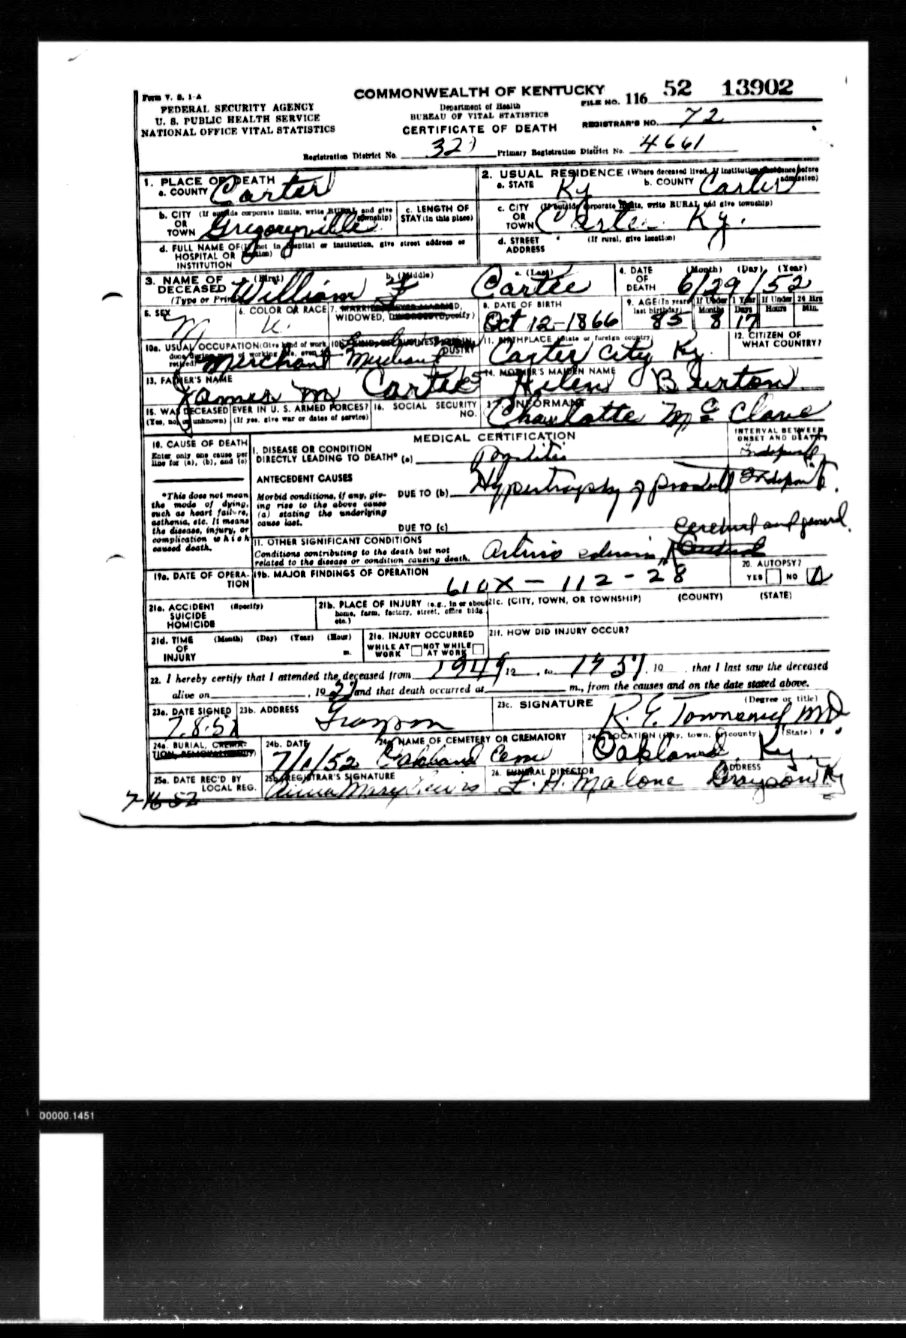 Form V. S. 1-A
FEDERAL SECURITY AGENCY
U. S. PUBLIC HEALTH SERVICE
NATIONAL OFFICE VITAL STATISTICS
COMMONWEALTH OF KENTUCKY
Department of Health
BUREAU OF VITAL STATISTICS
CERTIFICATE OF DEATH
FILE NO. 116 52 13902
REGISTRAR'S NO. 72
Registration District No. 32 Primary Registration District No. 4661
1. PLACE OF DEATH
a. COUNTY Carter
2. USUAL RESIDENCE (Where deceased lived. If institution: residence before admission)
a. STATE Ky b. COUNTY Carter
b. CITY OR TOWN (If outside corporate limits, write RURAL and give township) Gregoryville
c. LENGTH OF STAY (in this place)
c. CITY OR TOWN (If outside corporate limits, write RURAL and give township) Carter Ky.
d. FULL NAME OF HOSPITAL OR INSTITUTION (If not in hospital or institution, give street address or location)
d. STREET ADDRESS (If rural, give location)
3. NAME OF DECEASED (Type or Print) a. (First) William b. (Middle) F c. (Last) Cartee
4. DATE OF DEATH (Month) (Day) (Year) 6/29/52
5. SEX M
6. COLOR OR RACE
7. MARRIED, NEVER MARRIED, WIDOWED, DIVORCED (Specify)
8. DATE OF BIRTH Oct 12-1866
9. AGE (In years last birthday) 85 If Under 1 Year Months 8 Days 17 If Under 24 Hrs Hours Min.
10a. USUAL OCCUPATION (Give kind of work done during most of working life, even if retired) Merchant
10b. KIND OF BUSINESS OR INDUSTRY Merchant
11. BIRTHPLACE (State or foreign country) Carter City Ky.
12. CITIZEN OF WHAT COUNTRY?
13. FATHER'S NAME James M Cartee
14. MOTHER'S MAIDEN NAME Helen Burton
15. WAS DECEASED EVER IN U. S. ARMED FORCES? (Yes, no, or unknown) (If yes, give war or dates of service)
16. SOCIAL SECURITY NO.
17. INFORMANT Charlotte McClave
18. CAUSE OF DEATH
Enter only one cause per line for (a), (b), and (c)
*This does not mean the mode of dying, such as heart failure, asthenia, etc. It means the disease, injury, or complication which caused death.
MEDICAL CERTIFICATION
INTERVAL BETWEEN ONSET AND DEATH
I. DISEASE OR CONDITION DIRECTLY LEADING TO DEATH* (a)
ANTECEDENT CAUSES
Morbid conditions, if any, giving rise to the above cause (a) stating the underlying cause last.
DUE TO (b) Hypertrophy of
DUE TO (c)
II. OTHER SIGNIFICANT CONDITIONS
Conditions contributing to the death but not related to the disease or condition causing death.
cerebral and general
19a. DATE OF OPERATION
19b. MAJOR FINDINGS OF OPERATION
610X - 112 - 28
20. AUTOPSY?
YES NO
21a. ACCIDENT SUICIDE HOMICIDE (Specify)
21b. PLACE OF INJURY (e.g., in or about home, farm, factory, street, office bldg., etc.)
21c. (CITY, TOWN, OR TOWNSHIP) (COUNTY) (STATE)
21d. TIME OF INJURY (Month) (Day) (Year) (Hour) m.
21e. INJURY OCCURRED
WHILE AT WORK NOT WHILE AT WORK
21f. HOW DID INJURY OCCUR?
22. I hereby certify that I attended the deceased from 1949, to 19, that I last saw the deceased
alive on , 19 and that death occurred at m., from the causes and on the date stated above.
23a. DATE SIGNED
23b. ADDRESS Grayson
23c. SIGNATURE (Degree or title) R. E. Townsend MD
24a. BURIAL, CREMATION, REMOVAL
24b. DATE 7/1/52
24c. NAME OF CEMETERY OR CREMATORY Oakland Cem
24d. LOCATION (City, town, or county) (State) Oakland Ky
25a. DATE REC'D BY LOCAL REG. 7-16-52
25b. REGISTRAR'S SIGNATURE Anna Mary Lewis
26. FUNERAL DIRECTOR F. H. Malone
ADDRESS Grayson Ky
00000.1451